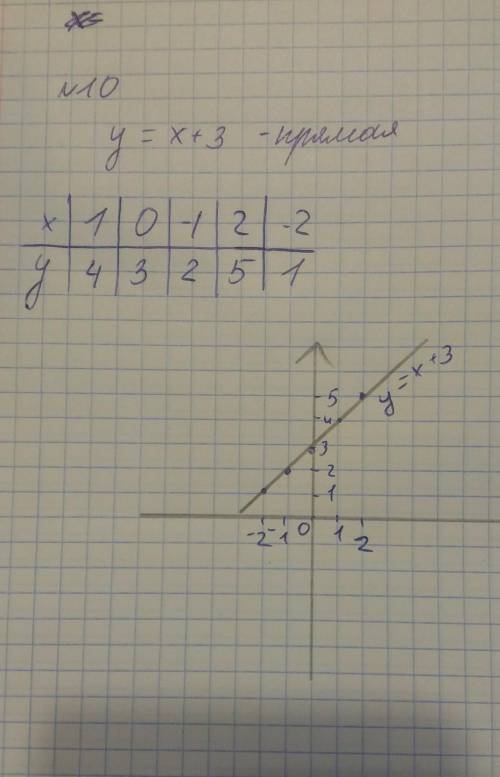 №10
y = x+3 - прямая
x 1 0 -1 2 -2
y 4 3 2 5 1
y = x+3
5
4
3
2
1
-2 -1 0 1 2